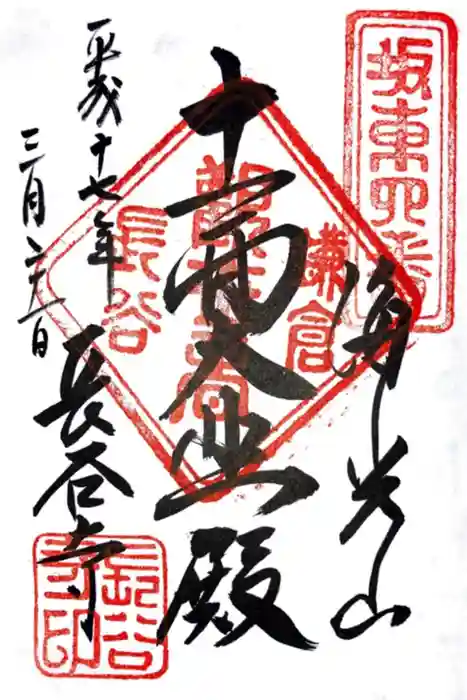 坂東四番
海光山
十一面大悲殿
鎌倉
長谷
平成十七年
三月 日
長谷寺
長谷
寺印